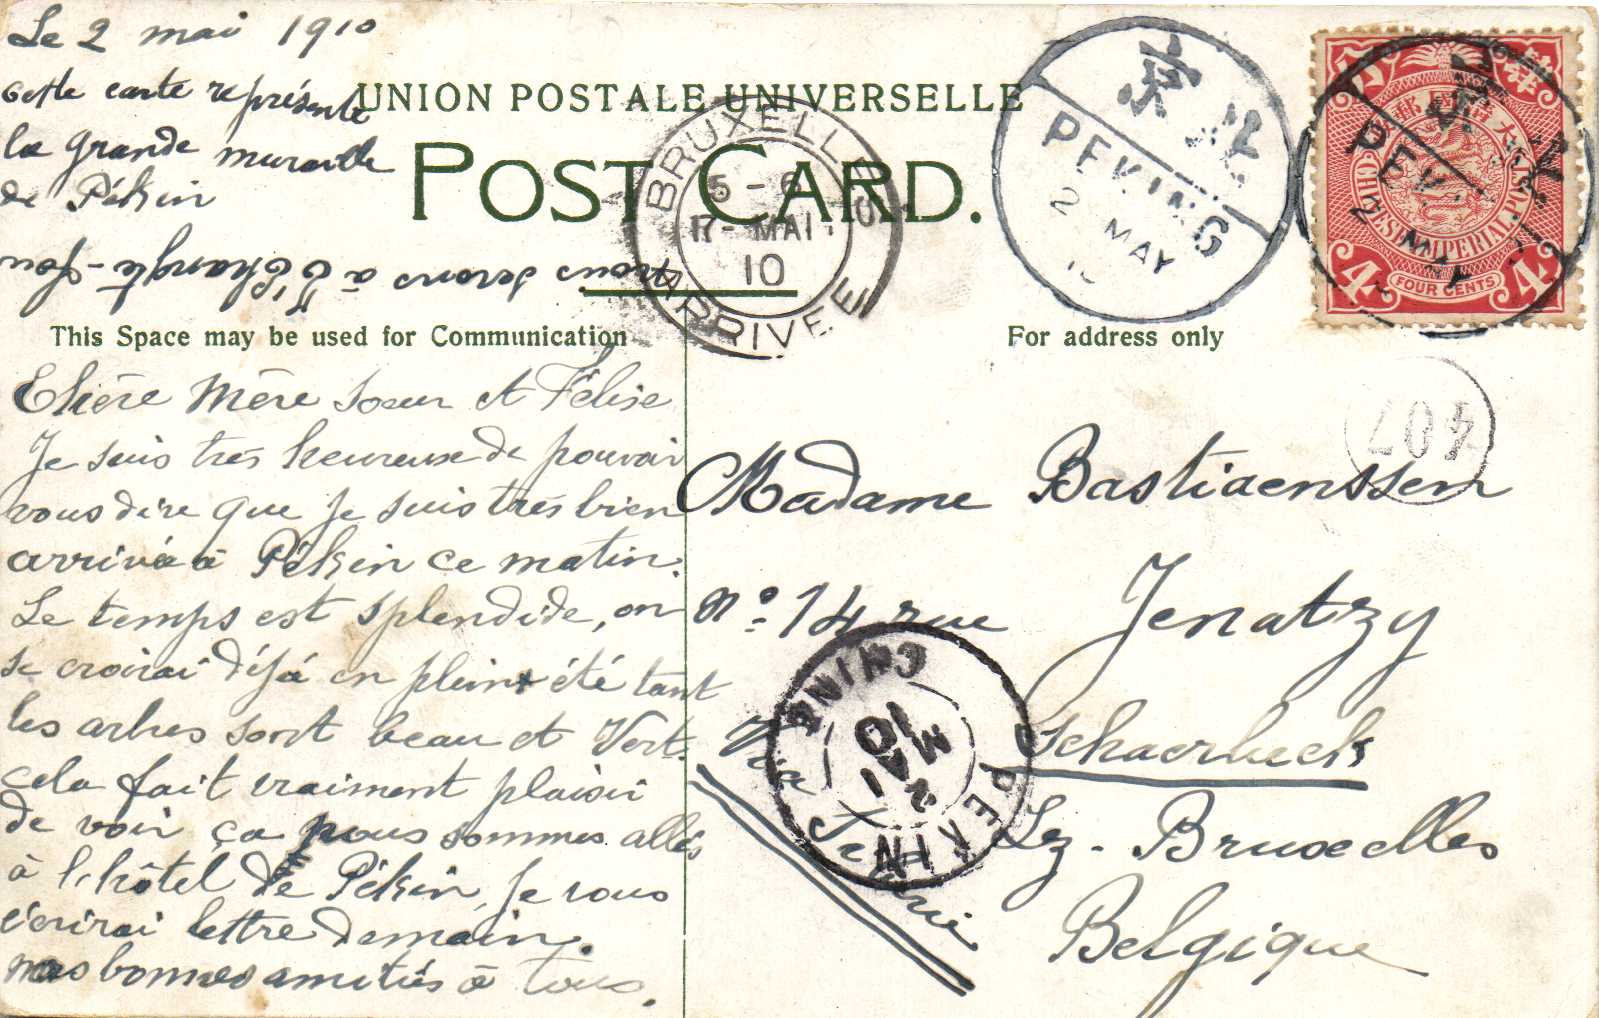 Le 2 mai 1910
cette carte représente
la grande muraille
de Pékin
nous serons à Tchang-fou
UNION POSTALE UNIVERSELLE
POST CARD.
This Space may be used for Communication
For address only
Chère Mère soeur et Félise
Je suis très heureuse de pouvoir
vous dire que je suis très bien
arrivée à Pékin ce matin.
Le temps est splendide, on
se croirai déjà en plein été tant
les arbres sont beau et Vert.
cela fait vraiment plaisir
de voir ça nous sommes allés
à l'hôtel de Pékin, je vous
écrirai lettre demain.
mes bonnes amitiés à tous.
Madame Bastiaenssen
n° 14 rue Jenatzy
Schaerbeek
Lez-Bruxelles
Belgique
Via Sibérie
BRUXELLES
17 - MAI
10
ARRIVEE
京北
PEKING
2 MAY
PEKING
大清國郵政
CHINESE IMPERIAL POST
4 4
FOUR CENTS
407
PEKIN
2 MAI
10
CHINE